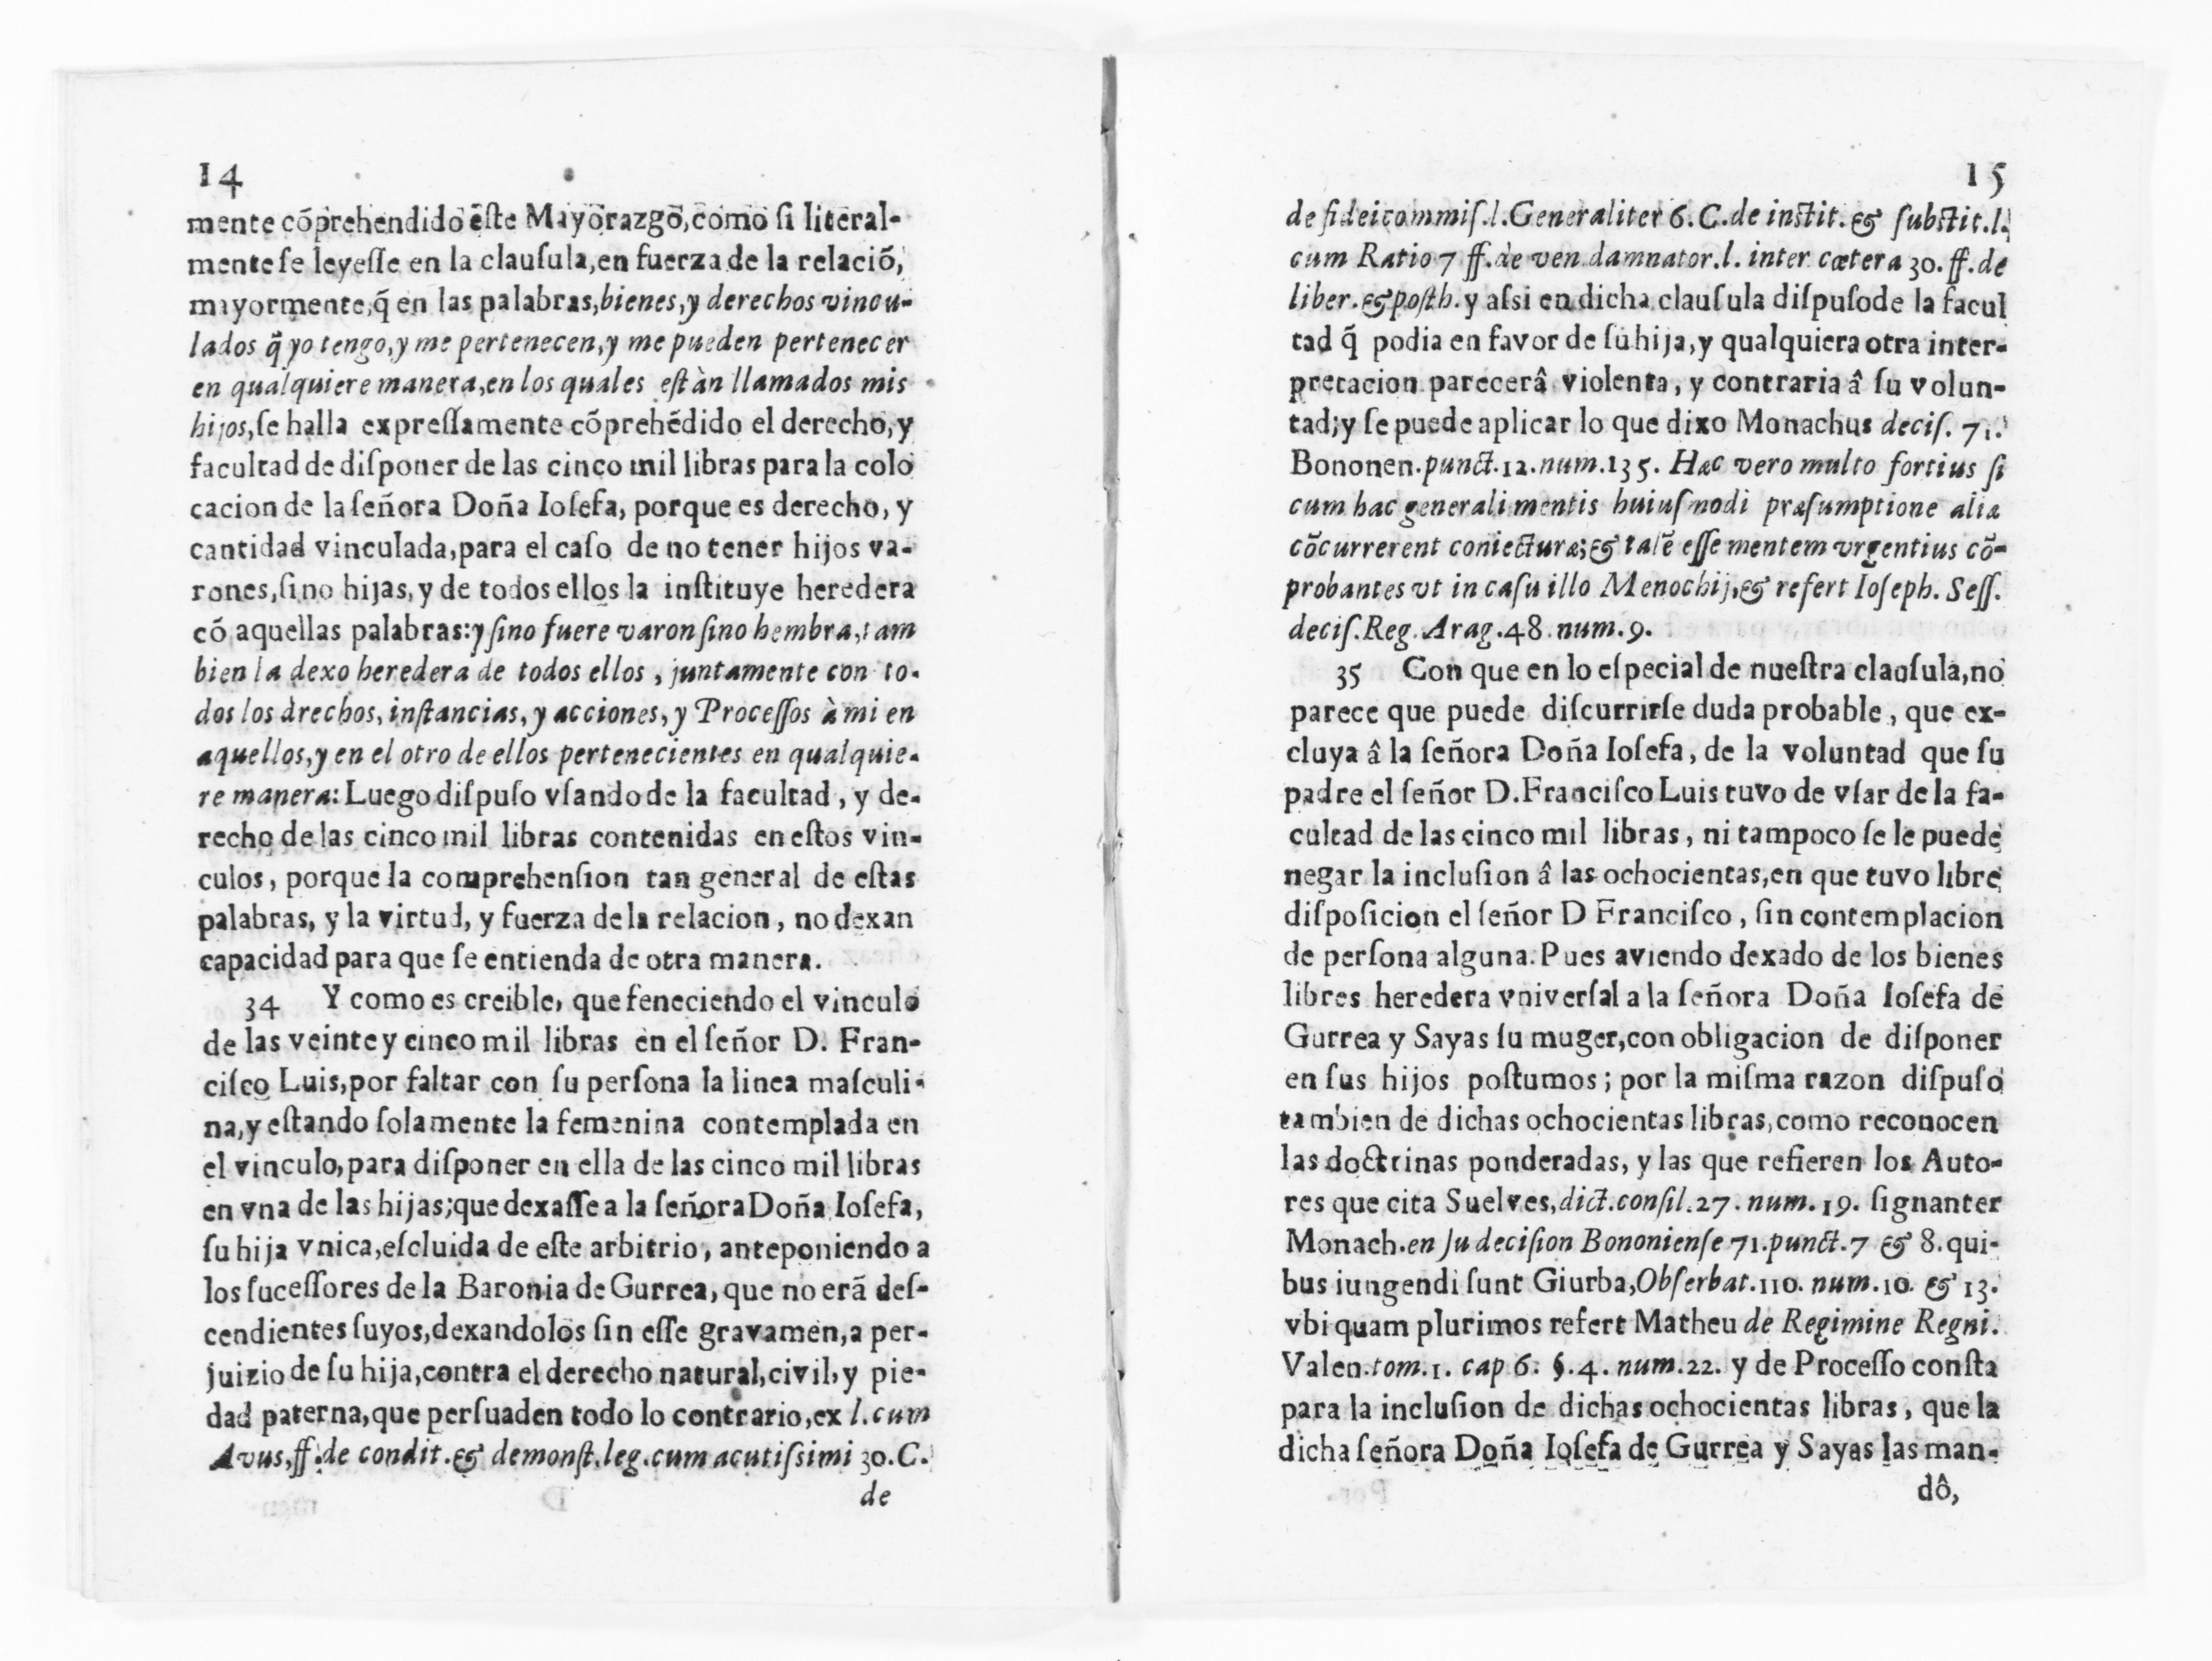 14
mente cõprehendido este Mayorazgo, como si literal-
mente se leyesse en la clausula, en fuerza de la relaciõ,
mayormente, q̃ en las palabras, bienes, y derechos vincu-
lados q̃ yo tengo, y me pertenecen, y me pueden pertenecer
en qualquiere manera, en los quales estàn llamados mis
hijos, se halla expressamente cõprehẽdido el derecho, y
facultad de disponer de las cinco mil libras para la colo
cacion de la señora Doña Iosefa, porque es derecho, y
cantidad vinculada, para el caso de no tener hijos va-
rones, sino hijas, y de todos ellos la instituye heredera
cõ aquellas palabras: y sino fuere varon sino hembra, tam
bien la dexo heredera de todos ellos, juntamente con to-
dos los drechos, instancias, y acciones, y Processos à mi en
aquellos, y en el otro de ellos pertenecientes en qualquie-
re manera: Luego dispuso vsando de la facultad, y de-
recho de las cinco mil libras contenidas en estos vin-
culos, porque la comprehension tan general de estas
palabras, y la virtud, y fuerza de la relacion, no dexan
capacidad para que se entienda de otra manera.
34 Y como es creible, que feneciendo el vinculo
de las veinte y cinco mil libras en el señor D. Fran-
cisco Luis, por faltar con su persona la linea masculi-
na, y estando solamente la femenina contemplada en
el vinculo, para disponer en ella de las cinco mil libras
en vna de las hijas; que dexasse a la señora Doña Iosefa,
su hija vnica, escluida de este arbitrio, anteponiendo a
los sucessores de la Baronia de Gurrea, que no erã des-
cendientes suyos, dexandolos sin esse gravamen, a per-
juizio de su hija, contra el derecho natural, civil, y pie-
dad paterna, que persuaden todo lo contrario, ex l. cum
Avus, ff. de condit. & demonst. leg. cum acutissimi 30. C.
de
15
de fideicommis. l. Generaliter 6. C. de instit. & substit. l.
cum Ratio 7 ff. de ven damnator. l. inter cætera 30. ff. de
liber. & posth. y assi en dicha clausula dispuso de la facul
tad q̃ podia en favor de su hija, y qualquiera otra inter-
pretacion parecerâ violenta, y contraria â su volun-
tad; y se puede aplicar lo que dixo Monachus decis. 71.
Bononen. punct. 12. num. 135. Hæc vero multo fortius si
cum hac generali mentis huiusmodi præsumptione aliæ
cõcurrerent coniecturæ; & talẽ esse mentem vrgentius cõ-
probantes vt in casu illo Menochij, & refert Ioseph. Sess.
decis. Reg. Arag. 48. num. 9.
35 Con que en lo especial de nuestra clausula, no
parece que puede discurrirse duda probable, que ex-
cluya â la señora Doña Iosefa, de la voluntad que su
padre el señor D. Francisco Luis tuvo de vsar de la fa-
cultad de las cinco mil libras, ni tampoco se le puede
negar la inclusion â las ochocientas, en que tuvo libre
disposicion el señor D Francisco, sin contemplacion
de persona alguna. Pues aviendo dexado de los bienes
libres heredera vniversal a la señora Doña Iosefa de
Gurrea y Sayas su muger, con obligacion de disponer
en sus hijos postumos; por la misma razon dispuso
tambien de dichas ochocientas libras, como reconocen
las doctrinas ponderadas, y las que refieren los Auto-
res que cita Suelves, dict. consil. 27. num. 19. signanter
Monach. en su decision Bononiense 71. punct. 7 & 8. qui-
bus iungendi sunt Giurba, Obserbat. 110. num. 10. & 13.
vbi quam plurimos refert Matheu de Regimine Regni.
Valen. tom. 1. cap 6. §. 4. num. 22. y de Processo consta
para la inclusion de dichas ochocientas libras, que la
dicha señora Doña Iosefa de Gurrea y Sayas las man-
dô,